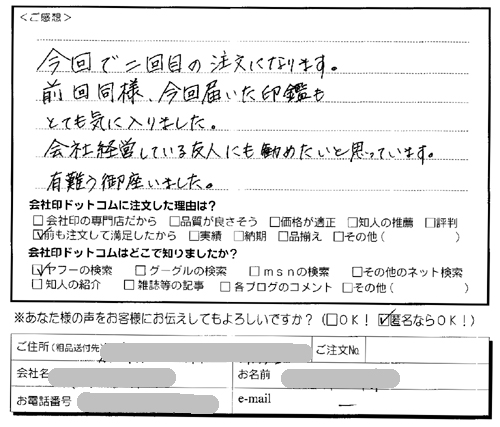 <ご感想>
今回で二回目の注文になります。
前回同様、今回届いた印鑑も
とても気に入りました。
会社経営している友人にも勧めたいと思っています。
有難う御座いました。
会社印ドットコムに注文した理由は?
□会社印の専門店だから □品質が良さそう □価格が適正 □知人の推薦 □評判
☑前も注文して満足したから □実績 □納期 □品揃え □その他( )
会社印ドットコムはどこで知りましたか?
☑ヤフーの検索 □グーグルの検索 □msnの検索 □その他のネット検索
□知人の紹介 □雑誌等の記事 □各ブログのコメント □その他( )
※あなた様の声をお客様にお伝えしてもよろしいですか?(□OK! ☑匿名ならOK!)
ご住所(粗品送付先) ご注文No.
会社名 お名前
お電話番号 e-mail ー